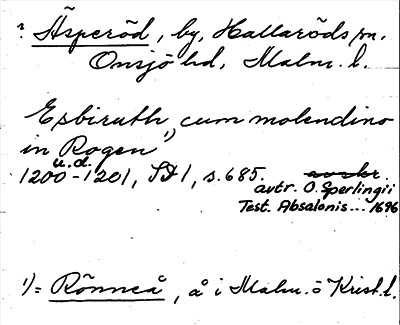 ? Äsperöd, by, Hallaröds sn.
Onsjö hd, Malm. l.
Esbiruth, cum molendino
in Rogen 1)
u.d.
1200-1201, SD 1, s. 685. avskr.
avtr. O. Sperlingii
Test. Absalonis... 1696
1) = Rönneå, å i Malm. o Krist. l.